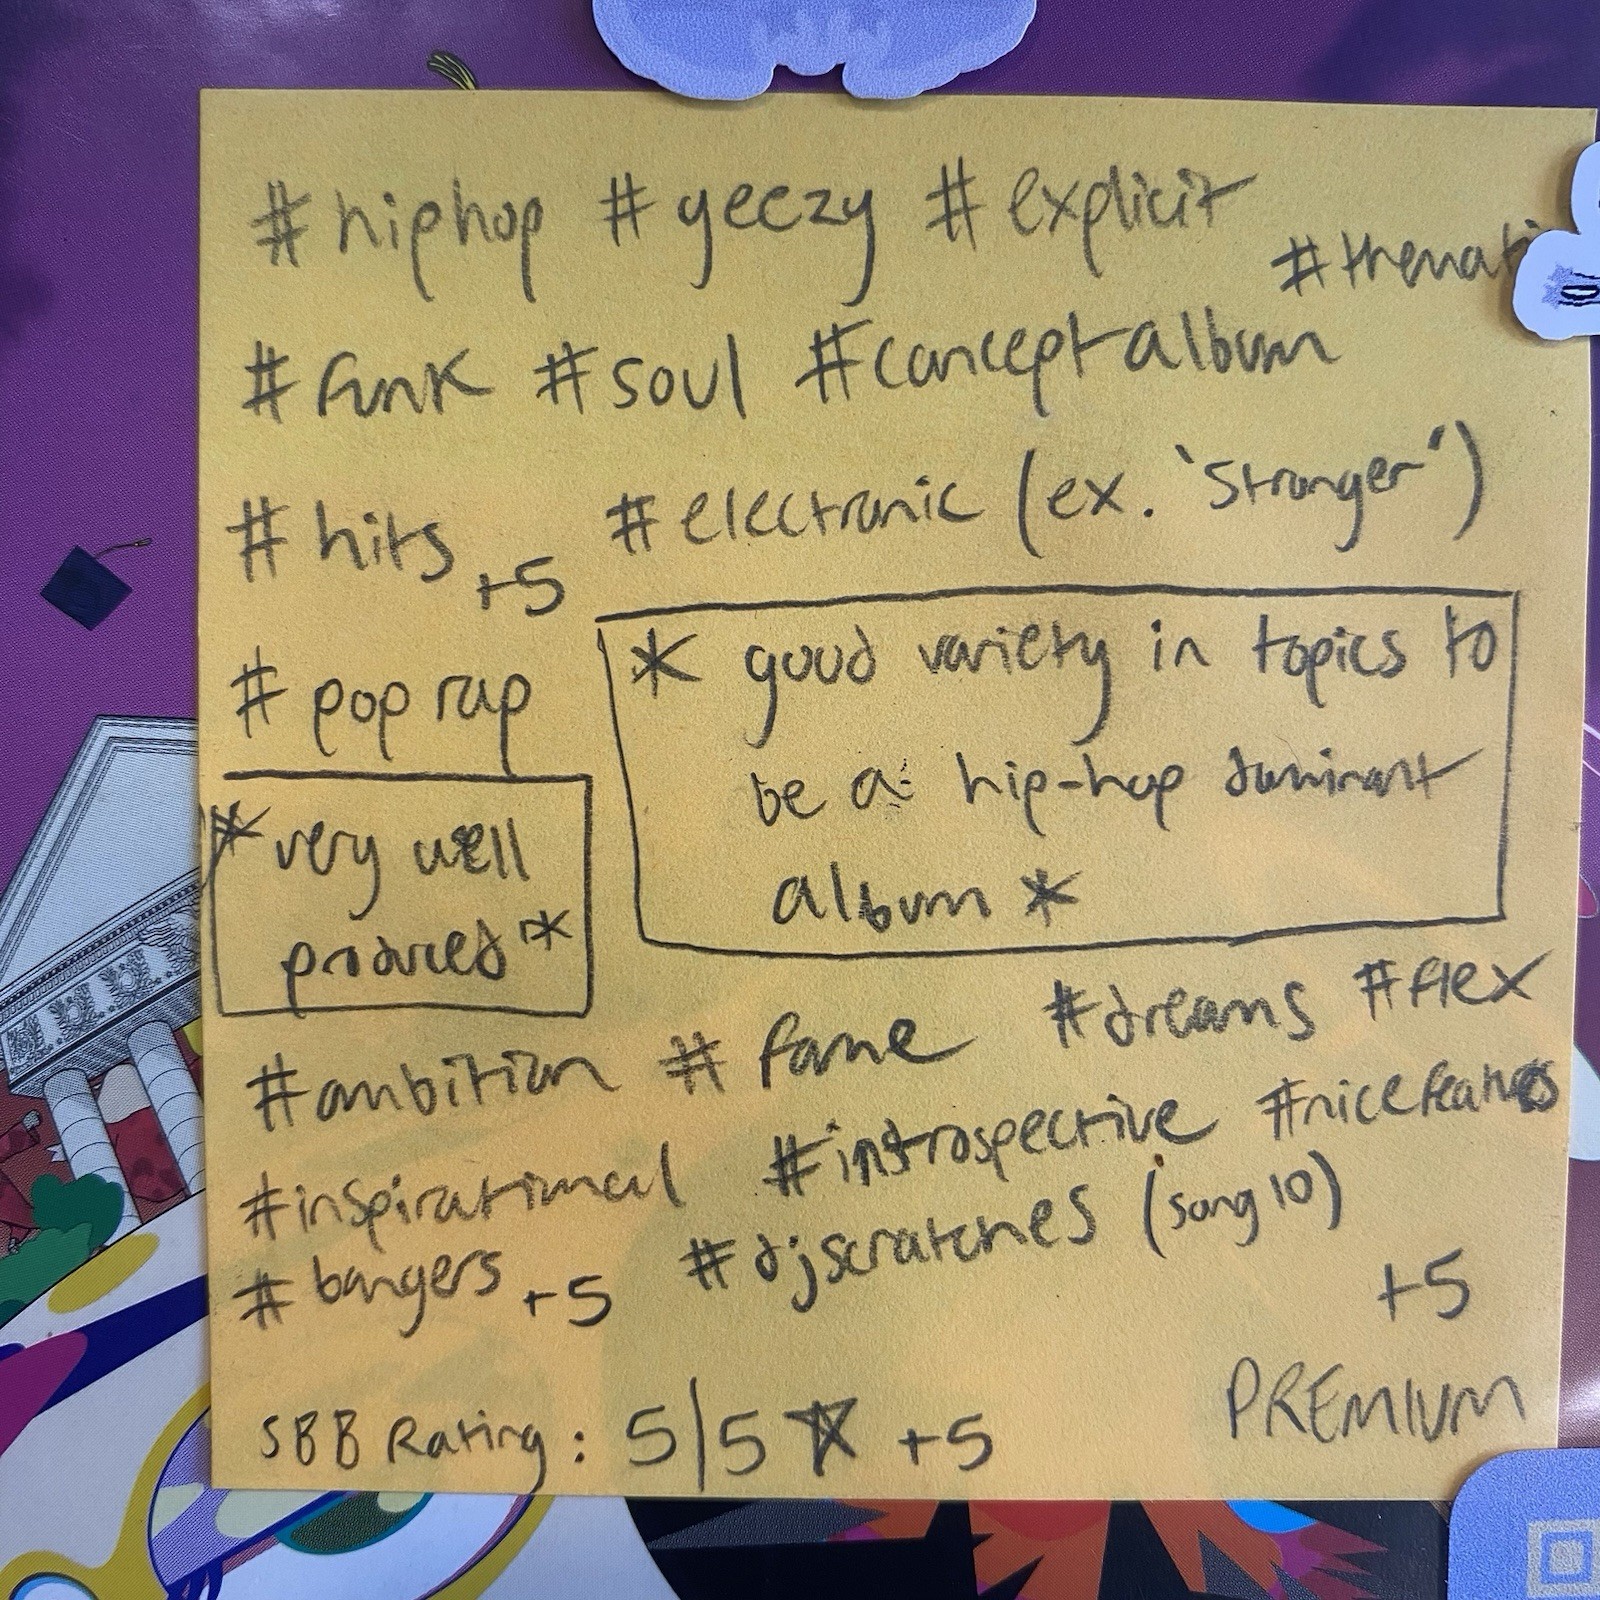 #hiphop #yeezy #explicit
#themati
#funk #soul #conceptalbum
#hits +5 #electronic (ex. 'Stronger')
#poprap
* good variety in topics to
be a hip-hop dominant
album *
* very well
produced *
#ambition #fame #dreams #flex
#inspirational #introspective #nicefeatures
#bangers +5 #djscratches (song 10)
+5
PREMIUM
SBB Rating: 5/5 ☆ +5